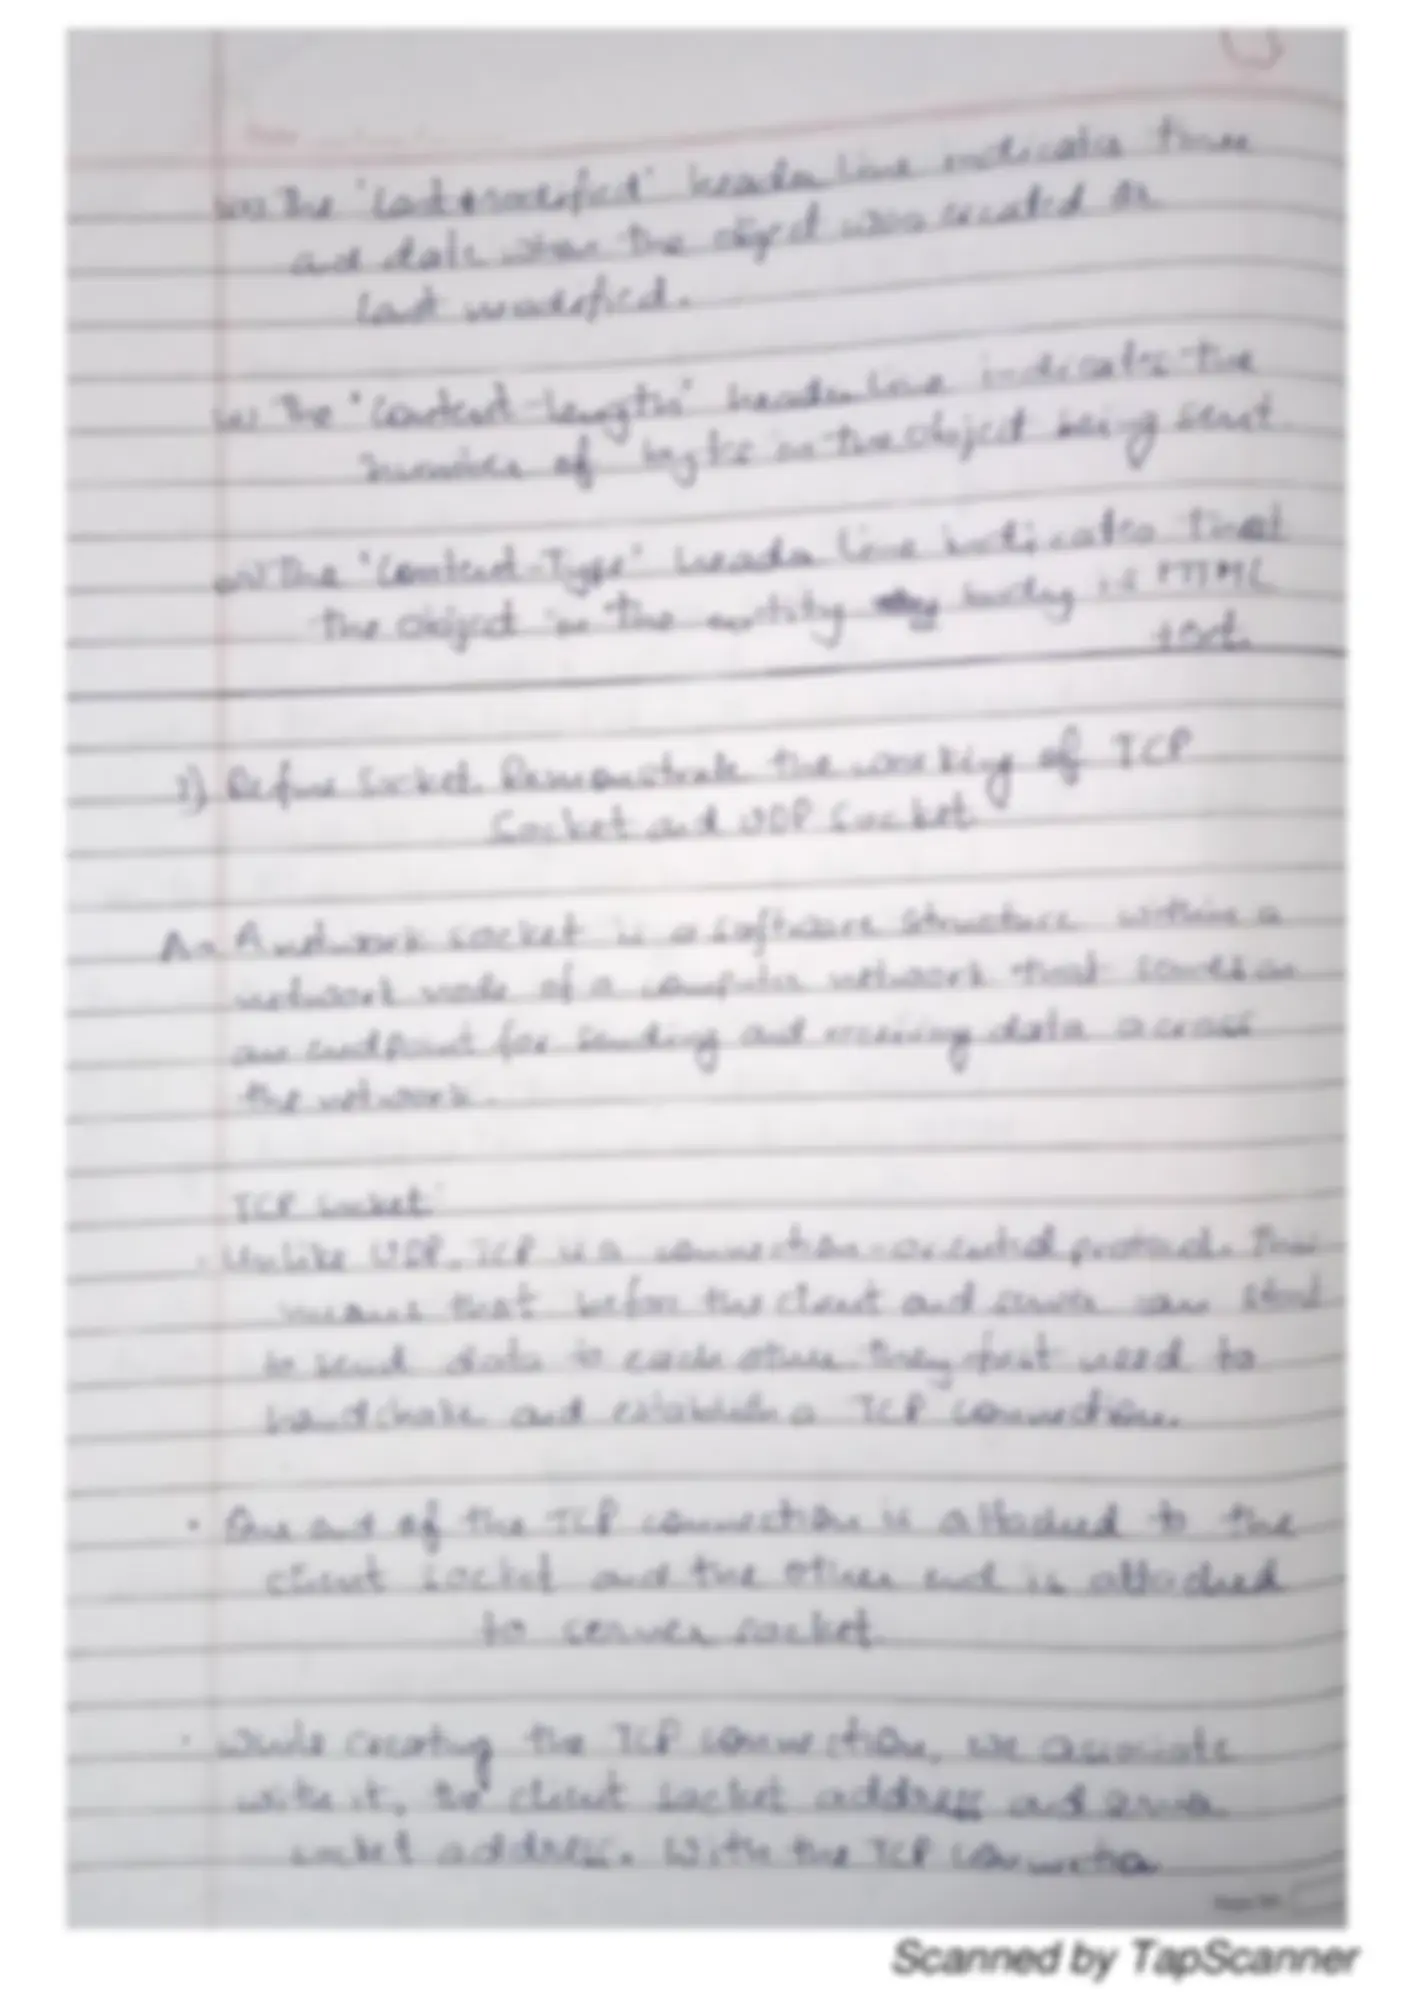 The "last modified" header line indicates time
and date when the object was created or
last modified.
The "Content-Length" header line indicates the
number of bytes in the object being sent.
The "Content-Type" header line indicates that
the object in the entity body is HTML
text.
2) Define Socket. Demonstrate the working of TCP
Socket and UDP Socket.
A network socket is a software structure within a
network node of a computer network that serves as
an endpoint for sending and receiving data across
the network.
TCP Socket:
· Unlike UDP, TCP is a connection-oriented protocol. This
means that before the client and server can start
to send data to each other they first need to
handshake and establish a TCP connection.
· One end of the TCP connection is attached to the
client socket and the other end is attached
to server socket.
· While creating the TCP connection, we associate
with it, the client socket address and server
socket address. With the TCP connection
Scanned by TapScanner